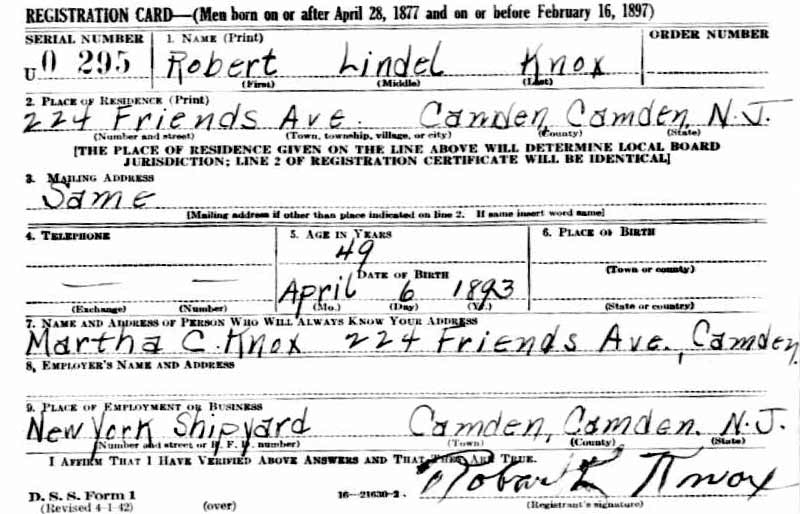 REGISTRATION CARD—(Men born on or after April 28, 1877 and on or before February 16, 1897)
SERIAL NUMBER 1. NAME (Print) ORDER NUMBER
U 0 295 Robert Lindel Knox
(First) (Middle) (Last)
2. PLACE OF RESIDENCE (Print)
224 Friends Ave. Camden, Camden, N.J.
(Number and street) (Town, township, village, or city) (County) (State)
[THE PLACE OF RESIDENCE GIVEN ON THE LINE ABOVE WILL DETERMINE LOCAL BOARD
JURISDICTION; LINE 2 OF REGISTRATION CERTIFICATE WILL BE IDENTICAL]
3. MAILING ADDRESS
Same
[Mailing address if other than place indicated on line 2. If same insert word same]
4. TELEPHONE 5. AGE IN YEARS 6. PLACE OF BIRTH
49
DATE OF BIRTH (Town or county)
— — April 6 1893
(Exchange) (Number) (Mo.) (Day) (Yr.) (State or country)
7. NAME AND ADDRESS OF PERSON WHO WILL ALWAYS KNOW YOUR ADDRESS
Martha C. Knox 224 Friends Ave., Camden.
8, EMPLOYER'S NAME AND ADDRESS
9. PLACE OF EMPLOYMENT OR BUSINESS
New York Shipyard Camden, Camden, N.J.
(Number and street or R. F. D. number) (Town) (County) (State)
I AFFIRM THAT I HAVE VERIFIED ABOVE ANSWERS AND THAT THEY ARE TRUE.
Robert L Knox
D. S. S. Form 1 16—21630-2
(Revised 4-1-42) (over) (Registrant's signature)